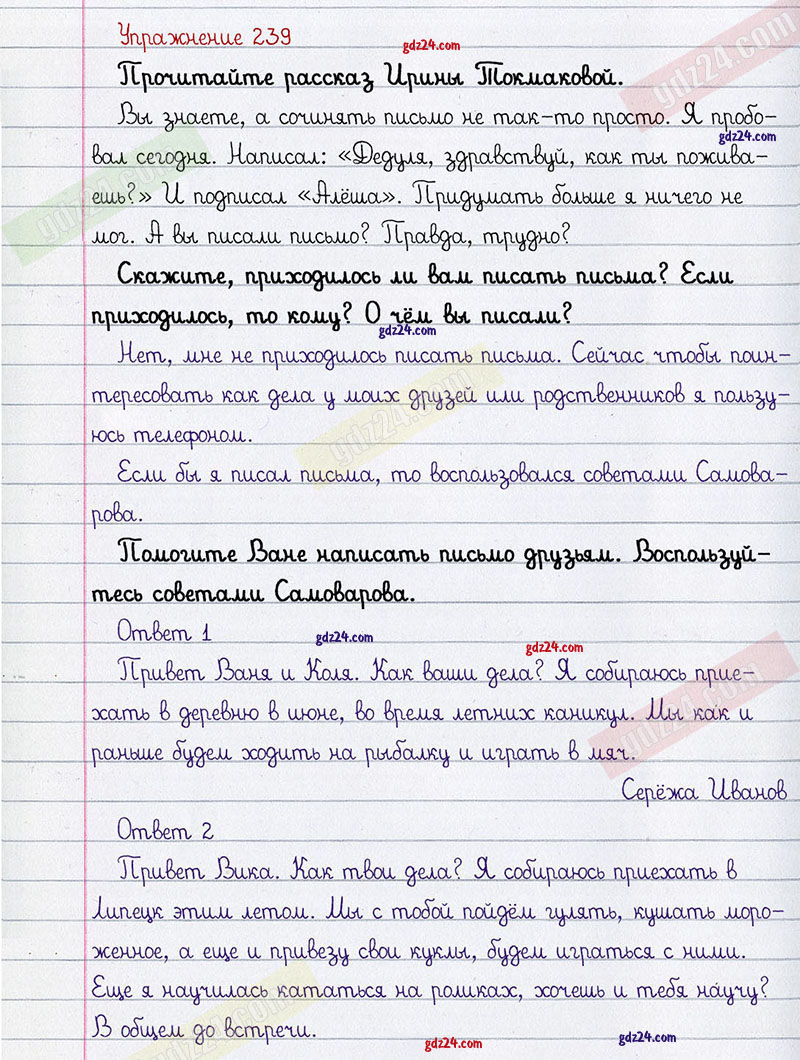 Упражнение 239
gdz24.com
gdz24.com
Прочитайте рассказ Ирины Токмаковой.
Вы знаете, а сочинять письмо не так-то просто. Я пробо-
gdz24.com
вал сегодня. Написал: «Дедуля, здравствуй, как ты пожива-
gdz24.com
ешь?» И подписал «Алёша». Придумать больше я ничего не
мог. А вы писали письмо? Правда, трудно?
Скажите, приходилось ли вам писать письма? Если
приходилось, то кому? О чём вы писали?
gdz24.com
Нет, мне не приходилось писать письма. Сейчас чтобы поин-
тересовать как дела у моих друзей или родственников я пользу-
gdz24.com
юсь телефоном.
Если бы я писал письма, то воспользовался советами Самова-
рова.
Помогите Ване написать письмо друзьям. Воспользуй-
тесь советами Самоварова.
Ответ 1
gdz24.com
gdz24.com
Привет Ваня и Коля. Как ваши дела? Я собираюсь прие-
хать в деревню в июне, во время летних каникул. Мы как и
gdz24.com
раньше будем ходить на рыбалку и играть в мяч.
Серёжа Иванов
Ответ 2
Привет Вика. Как твои дела? Я собираюсь приехать в
Липецк этим летом. Мы с тобой пойдём гулять, кушать моро-
женное, а еще и привезу свои куклы, будем играться с ними.
Еще я научилась кататься на роликах, хочешь и тебя научу?
gdz24.com
В общем до встречи.
gdz24.com
gdz24.com